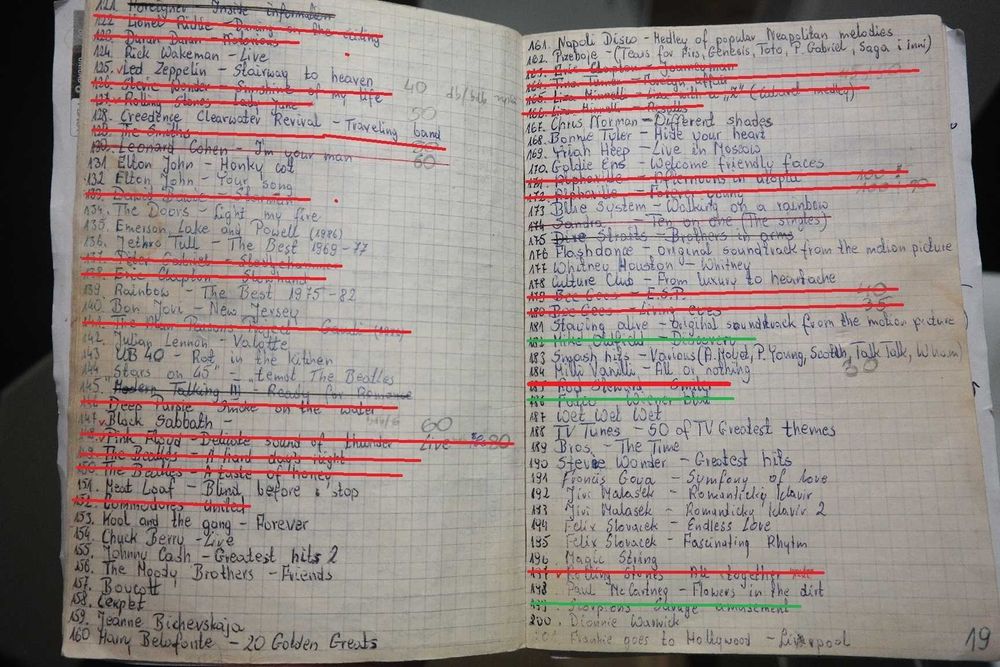 121. Foreigner - Inside information
122. Lionel Richie - Dancing on the ceiling
123. Duran Duran - Notorious
124. Rick Wakeman - Live
125. Led Zeppelin - Stairway to heaven
126. Stevie Wonder - Sunshine of my life 40
127. Rolling Stones - Lady Jane
128. Creedence Clearwater Revival - Traveling band
129. The Smiths
130. Leonard Cohen - I'm your man 60
131 Elton John - Honky
132 Elton John - Your song
133. David Bowie - Starman
134. The Doors - Light my fire
135. Emerson, Lake and Powell (1986)
136. Jethro Tull - The Best 1969-77
137 Peter Gabriel - Sledgehammer
138 Eric Clapton - Slowhand
139. Rainbow - The Best 1975-82
140. Bon Jovi - New Jersey
141. The Alan Parsons Project
142. Julian Lennon - Valotte
143 UB 40 - Rat in the kitchen
144 "Stars on 45" - The Beatles
145 Modern Talking III - Ready for Romance
146 Deep Purple - Smoke on the water
147. Black Sabbath - 60
148. Pink Floyd - Delicate sound of thunder Live 80
149 The Beatles - A hard day's night
150 The Beatles - A taste of honey
151. Meat Loaf - Blind before i stop
152. Commodores United
153. Kool and the gang - Forever
154. Chuck Berry - Live
155. Johnny Cash - Greatest hits 2
156. The Moody Brothers - Friends
157. Boycott
158.
159. Jeanne Bichevskaja
160 Harry Belafonte - 20 Golden Greats
161. Napoli Disco - Medley of popular Neapolitan melodies
162. Przeboje - (Tears for Firs, Genesis, Toto, P. Gabriel, Saga i inni)
163. Eric Clapton - Journeyman
164. Tina Turner - Foreign affair
165. Liza Minnelli - Liza with a "Z" (Cabaret medley)
166. Liza Minnelli - Results
167. Chris Norman - Different shades
168. Bonnie Tyler - Hide your heart
169. Uriah Heep - Live in Moscow
170. Goldie Ens - Welcome friendly faces
171. Alphaville - Afternoons in utopia
172. Alphaville - Forever young
173 Blue System - Walking on a rainbow
174 Sandra - Ten on one (The singles)
175 Dire Straits - Brothers in arms
176 Flashdance - original soundtrack from the motion picture
177 Whitney Houston - Whitney
178 Culture Club - From luxury to heartache
179 Bee Gees - E.S.P. 40
180 Bee Gees - Living eyes 35
181 Staying alive - Original soundtrack from the motion picture
182 Mike Oldfield - Discovery
183 Smash hits - Various (A. Moyet, P. Young, Scotch, Talk Talk, Wham)
184 Milli Vanilli - All or nothing 30
185 Rod Stewart - Smiler
186 Falco - Wiener blut
187 Wet Wet Wet
188 TV Tunes - 50 of TV Greatest themes
189 Bros. - The Time
190 Stevie Wonder - Greatest hits
191 Francis Goya - Symfony of Love
192 Jivi Malasek - Romanticky klavir
193 Jivi Malasek - Romanticky klavir 2
194 Felix Slovacek - Endless Love
195 Felix Slovacek - Fascinating Rhytm
196 Magic String
197 Rolling Stones - All together
198 Paul McCartney - Flowers in the dirt
199 Scorpions - Savage amusement
200. Dionnie Warwick
201 Frankie goes to Hollywood - Liverpool
19